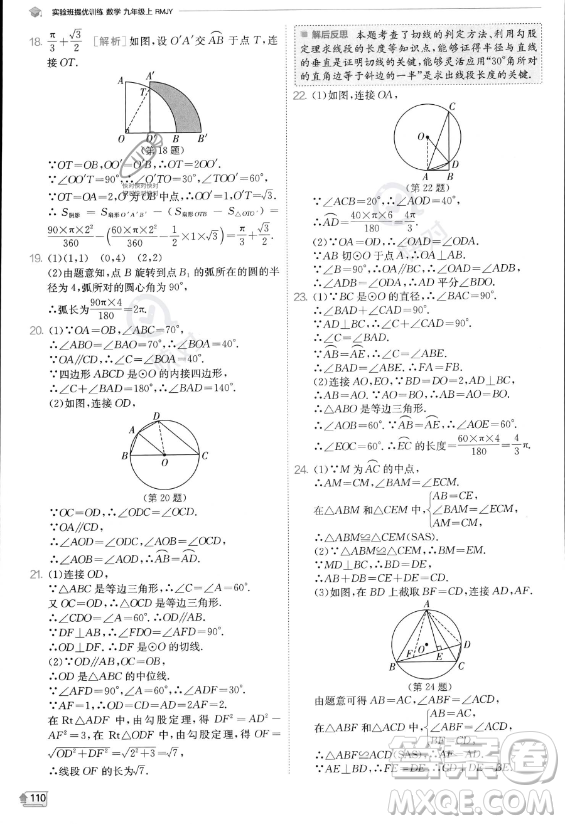 实验班提优训练 数学 九年级上 RMJY
18. π/3+√3/2 [解析]如图，设O′A′交AB⌒于点T，连
接OT.
A A′
T
O O′ B B′
(第18题)
∵OT=OB,OO′=O′B,∴OT=2OO′.
∵∠OO′T=90°,∴∠O′TO=30°,∠TOO′=60°.
∵OB=2,点O′为OB中点,∴OO′=1,O′T=√3.
∴S阴影=S扇形O′A′B′-(S扇形OTB-S△OTO′)=
90π×2²/360-(60π×2²/360-1/2×1×√3)=π/3+√3/2.
19. (1)(1,1) (0,4) (2)90°
(2)由题意知,点B旋转到点B₁的弧所在的圆的半
径为4,所对的圆心角为90°,
∴弧长为90π×4/180=2π.
20. (1)∵OA=OB,∠ABC=70°,
∴∠BAO=∠ABC=70°.∴∠BOA=40°.
∵四边形ABCD是⊙O的内接四边形,
∴∠C+∠BAD=180°.∴∠C+∠BAD=140°.
(2)如图,连接OD,
A D
B O C
(第20题)
∵OA∥CD,∴∠AOB=∠C,∠AOD=∠ODC.
∵OD=OC,∴∠ODC=∠C.
∴∠AOB=∠AOD.∴AB⌒=AD⌒.
21. (1)连接OD,
∵△ABC是等边三角形,∴∠C=∠A=60°.
又OC=OD,∴△OCD是等边三角形.
∴∠CDO=∠A=60°.∴OD∥AB.
∵DF⊥AB,∴∠FDO=∠AFD=90°.
∴DF是⊙O的切线.
(2)∵OD∥AB,OC=OB,
∴OD是△ABC的中位线.
∵∠AFD=90°,∠A=60°,
∴∠ADF=30°.
∵AF=1,∴CD=OD=AD=2AF=2.
在Rt△ADF中,由勾股定理,得DF²=AD²-
AF²=3.在Rt△ODF中,由勾股定理,得OF=
√OD²+DF²=√2²+3=√7,
∴线段OF的长为√7.
110
解后反思 本题考查了切线的判定方法,利用勾股
定理求线段的长度等知识点,能够证得半径与直线
的垂直是证明切线的关键,能够灵活应用“30°角所对
的直角边等于斜边的一半”是求出线段长度的关键.
22. (1)如图,连接OA,
C
O
A B
D
(第22题)
∵∠ACB=20°,∴∠AOD=40°.
∴AD⌒=40×π×6/180=4π/3.
(2)∵OA=OD,∴∠OAD=∠ODA.
∵AB切⊙O于点A,∴∠OAB=90°.
∵∠B=90°,∴OA∥BC.∴∠OAD=∠ADB.
∴∠ADB=∠ODA.∴AD平分∠BDO.
23. (1)∵BC是⊙O的直径,∴∠BAC=90°.
∵AD⊥BC,∴∠C=∠BAD.
∵AB⌒=AE⌒,∴∠C=∠ABE.
∴∠BAD=∠ABE.∴FA=FB.
(2)连接AO,EO,∵BD=DO=2,AD⊥BC,
∴AB=AO.∵AO=BO,∴AB=AO=BO.
∴△ABO是等边三角形.∴∠AOB=60°.
∵AB⌒=AE⌒,∴∠AOE=60°.
∴∠EOC=60°.∴CE⌒=60×π×4/180=4/3π.
24. (1)∵M为AC⌒的中点,
∴AM=CM,AM⌒=CM⌒.
在△ABM和△CEM中,{AB=CE, ∠BAM=∠ECM, AM=CM,
∴△ABM≌△CEM(SAS).
(2)∵△ABM≌△CEM,∴BM=EM.
∵MD⊥BC,∴BD=DE.
∴AB+BD=CE+DE=CD.
(3)如图,在BD上截取BF=CD,连接AF,
A
B F E O D
C
(第24题)
由题意可得AB=AC,∠ABF=∠ACD.
在△ABF和△ACD中,{AB=AC, ∠ABF=∠ACD, BF=CD,
∴△ABF≌△ACD(SAS).∴AF=AD.
∵AE⊥BD,∴FE=DE.∴CD+DE=BE.